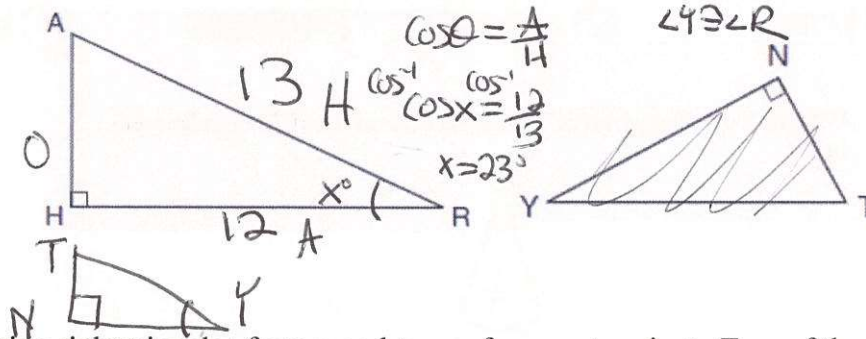 A
13
H
O
H
12
A
x°
R
cosθ = A/H
cos⁻¹ cos⁻¹
cosx = 12/13
x = 23°
∠Y ≅ ∠R
N
Y
T
T
N
Y